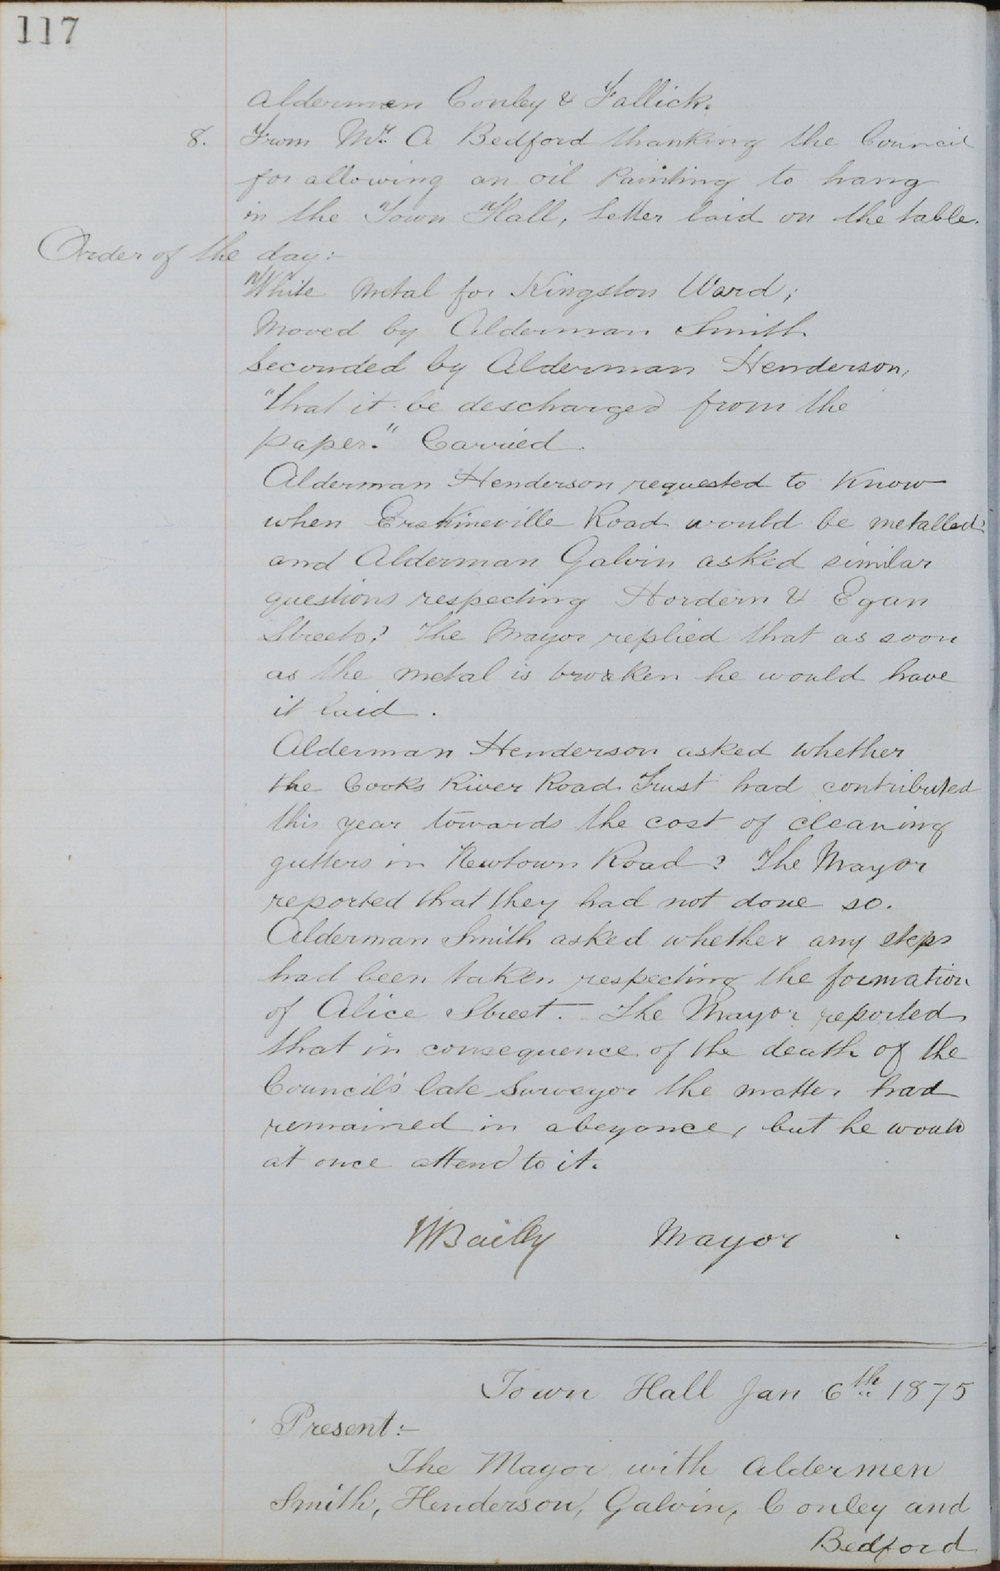 117
Aldermen Conley & Fallick.
8. From Mr. A Bedford thanking the Council
for allowing an oil Painting to hang
in the Town Hall, letter laid on the table.
Order of the day:-
White Metal for Kingston Ward;
Moved by Alderman Smith
Seconded by Alderman Henderson,
"that it be descharged from the
paper." Carried.
Alderman Henderson requested to Know
when Erskineville Road would be metalled?
and Alderman Galvin asked similar
questions respecting Hordern & Egan
Streets? The Mayor replied that as soon
as the metal is broken he would have
it laid.
Alderman Henderson asked whether
the Cooks River Road Trust had contributed
this year towards the cost of cleaning
gutters in Newtown Road? The Mayor
reported that they had not done so.
Alderman Smith asked whether any steps
had been taken respecting the formation
of Alice Street. The Mayor reported
that in consequence of the death of the
Council's late Surveyor the matter had
remained in abeyance, but he would
at once attend to it.
WBailly Mayor
Town Hall Jan 6th 1875
Present:-
The Mayor with Aldermen
Smith, Henderson, Galvin, Conley and
Bedford